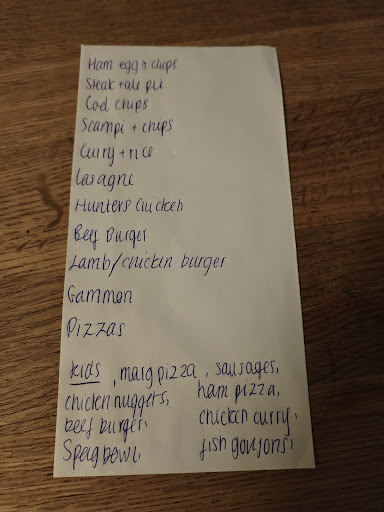 Ham egg & chips
Steak + ale pie
Cod chips
Scampi + chips
Curry + rice
Lasagne
Hunters Chicken
Beef Burger
Lamb/chicken burger
Gammon
Pizzas
Kids, marg pizza, sausages,
chicken nuggets, ham pizza,
beef burger, chicken curry,
Spag bowl, fish goujons,